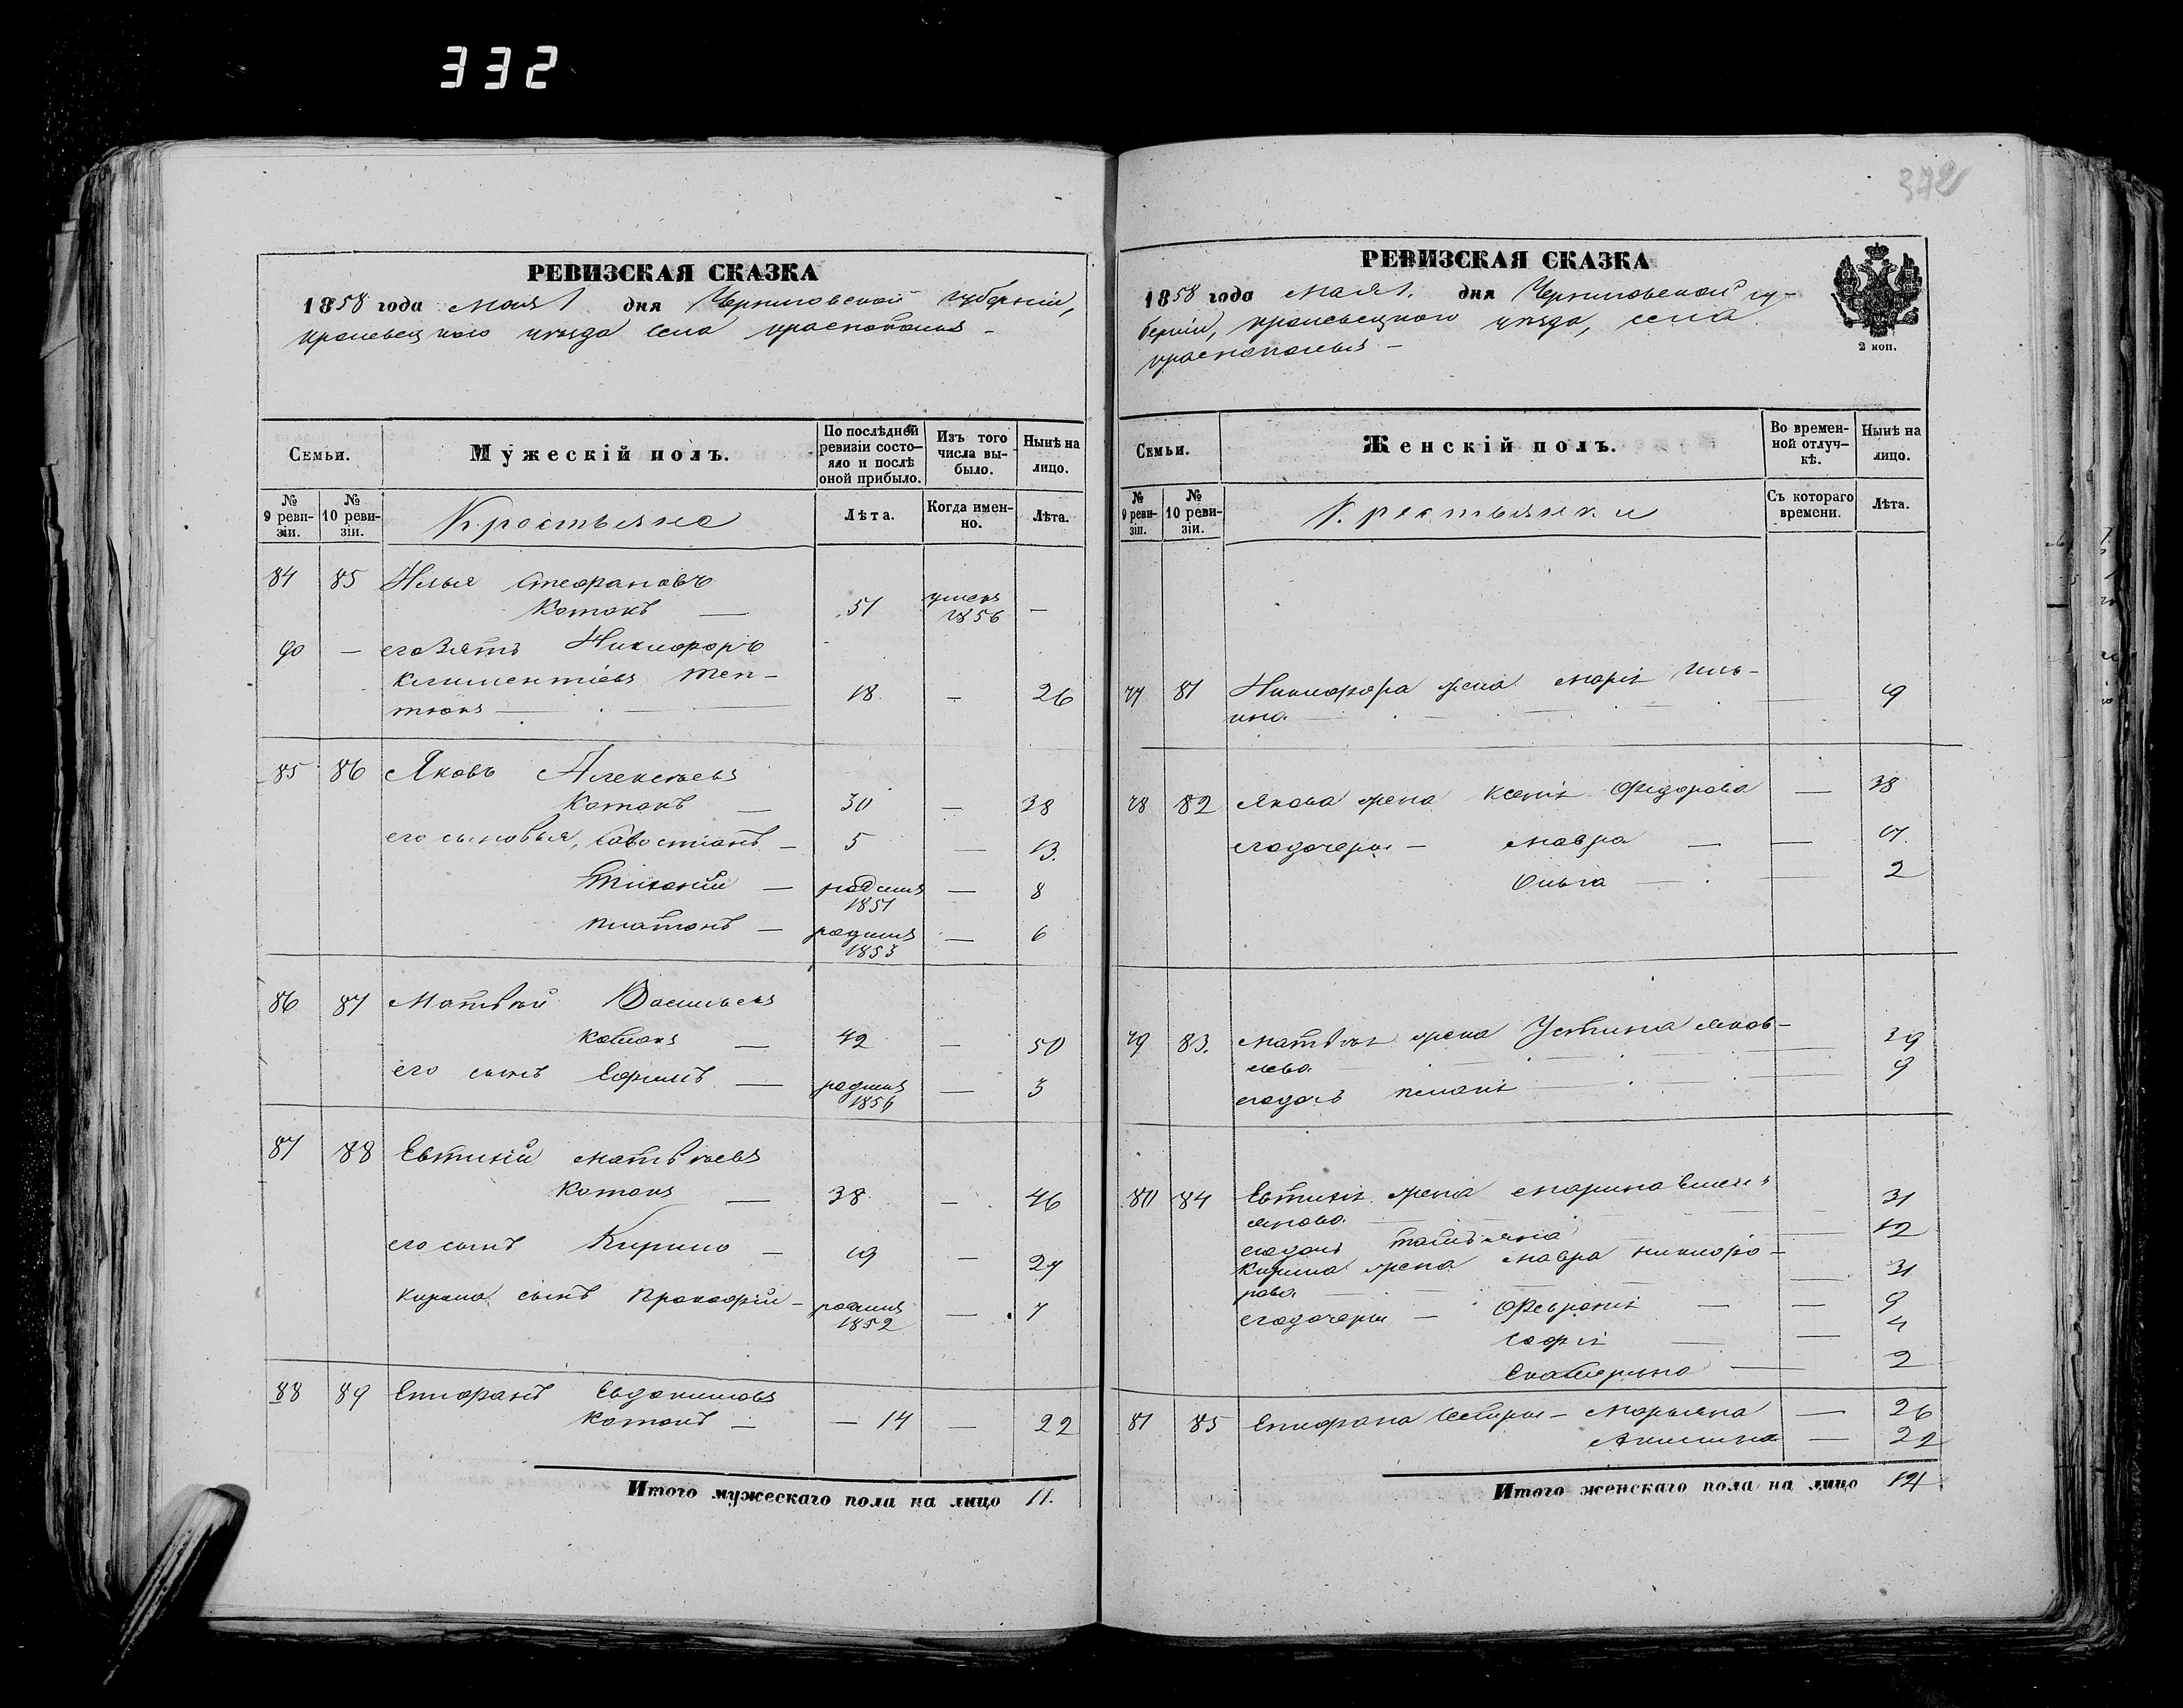 332
РЕВИЗСКАЯ СКАЗКА
1858 года мая 1 дня Черниговской губерніи,
кролевецкаго уѣзда села краснополья -
Семьи.
Мужескій полъ.
По послѣдней ревизіи состояло и послѣ оной прибыло.
Изъ того числа выбыло.
Нынѣ на лицо.
№ 9 ревизіи.
№ 10 ревизіи.
Крестьяне
Лѣта.
Когда именно.
Лѣта.
84 85 Илья Стефановъ
Котокъ — 51 умеръ 1856 —
90 — его зять Никифоръ
Климентіевъ Теп-
тюкъ — 18 — 26
85 86 Яковъ Алексѣевъ
Котокъ — 30 — 38
его сыновья, Савостіанъ — 5 — 13.
Тихонъ — родился 1851 — 8
Платонъ — родился 1853 — 6
86 87 Матвѣй Васильевъ
Котокъ — 42 — 50
его сынъ Ефимъ — родился 1856 — 3
87 88 Евтихій Матвѣевъ
Котокъ — 38 — 46
его сынъ Кирило — 19 — 27
Кирила сынъ Прокофій — родился 1852 — 7
88 89 Епифанъ Евдокимовъ
Котокъ — 14 — 22
Итого мужескаго пола на лицо 11.
372
РЕВИЗСКАЯ СКАЗКА
1858 года мая 1. дня Черниговской гу-
берніи, кролевецкаго уѣзда, села
краснополья —
2 коп.
Семьи.
Женскій полъ.
Во временной отлучкѣ.
Нынѣ на лицо.
№ 9 ревизіи.
№ 10 ревизіи.
Крестьянки
Съ котораго времени.
Лѣта.
77 81 Никифора жена Марія Иль-
ина — 19
78 82 Якова жена Ксенія Федорова — 38
его дочери — Мавра — 17.
Ольга — 2
79 83. Матвѣя жена Устина Яков-
лева — 39
его дочь Пелагія — 9
80 84 Евтихія жена Марина Емель-
янова — 31
его дочь Татьяна — 12
Кирила жена Мавра Никифо-
рова — 31
его дочери — Февронія — 9
Софія — 4
Екатерина — 2
81 85 Епифана сестры — Марьяна — 26
Акилина — 22
Итого женскаго пола на лицо 14.